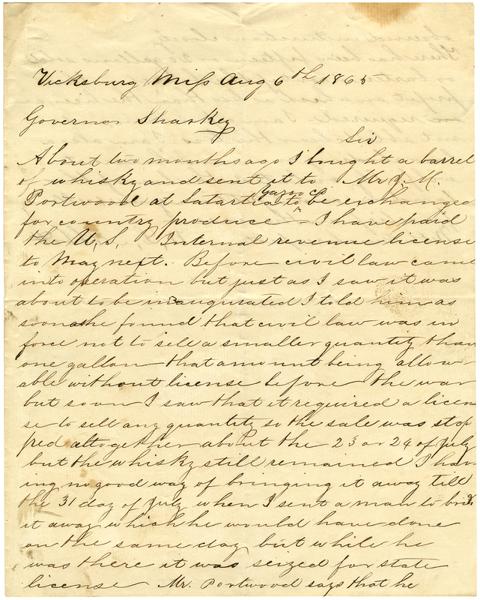 Vicksburg Miss Aug 6th 1865
Governor Sharkey
Sir
About two months ago I bought a barrel
of whisky and sent it to Mr J. M.
Portwood at Satartia Yazoo Co to be exchanged
for country produce I have paid
the U, S, Internal revenue license
to May next. Before civil law came
into operation but just as I saw it was
about to be inaugurated I told him as
soon as he found that civil law was in
force not to sell a smaller quantity than
one gallon that amount being allow
able without license before the war
but soon I saw that it required a licen
se to sell any quantity so the sale was stop
ped altogether about the 23 or 24 of July
but the whisky still remained I hav
ing no good way of bringing it away till
the 31 day of July when I sent a man to bring
it away which he would have done
on the same day but while he
was there it was seized for state
license Mr. Portwood says that he